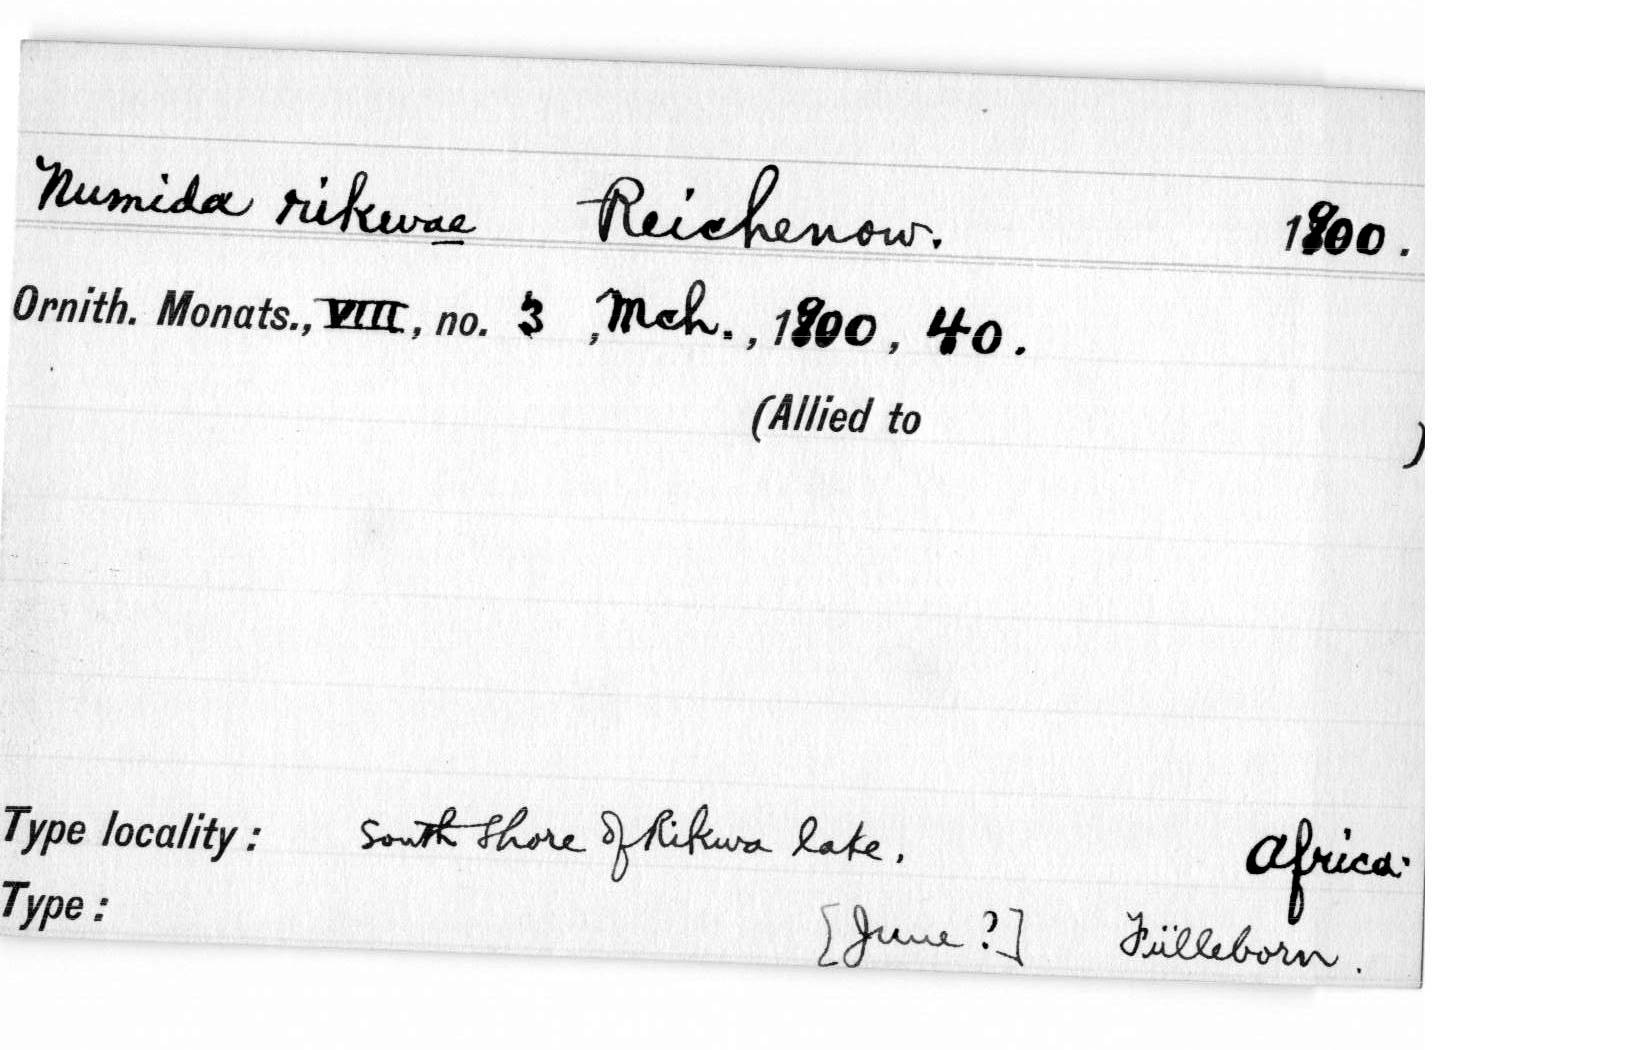 Numida rikwae Reichenow. 1900.
Ornith. Monats., VIII, no. 3, Mch., 1900, 40.
(Allied to )
Type locality: South shore of Rikwa lake. Africa.
Type: [June ?] Fülleborn.